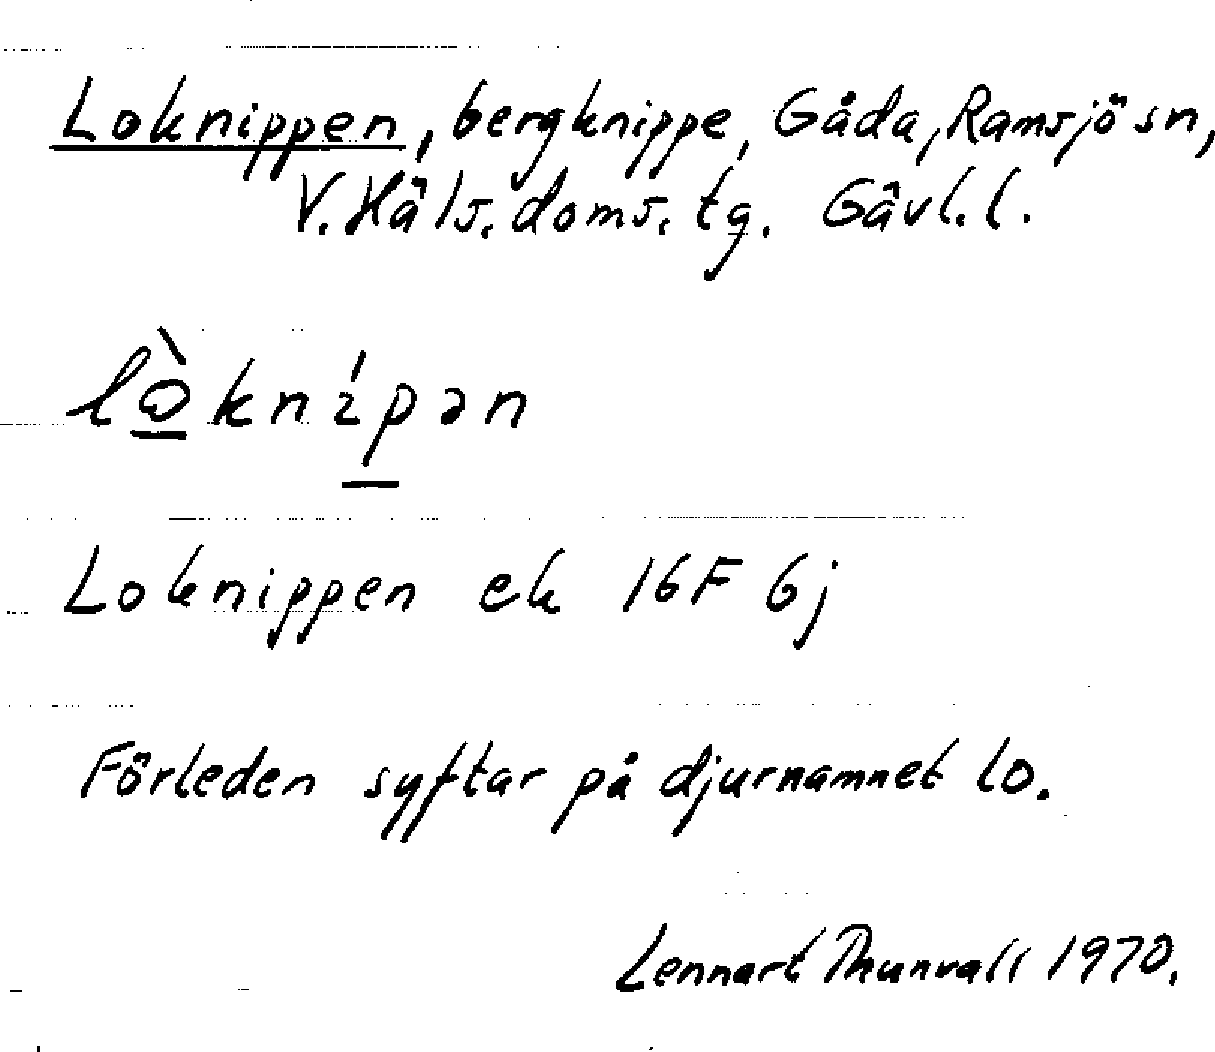 Loknippen, bergknippe, Gåda, Ramsjö sn,
V. Häls. doms. tg. Gävl. l.
lò̠knípən
Loknippen ek 16F 6j
Förleden syftar på djurnamnet lo.
Lennart Thunvall 1970.